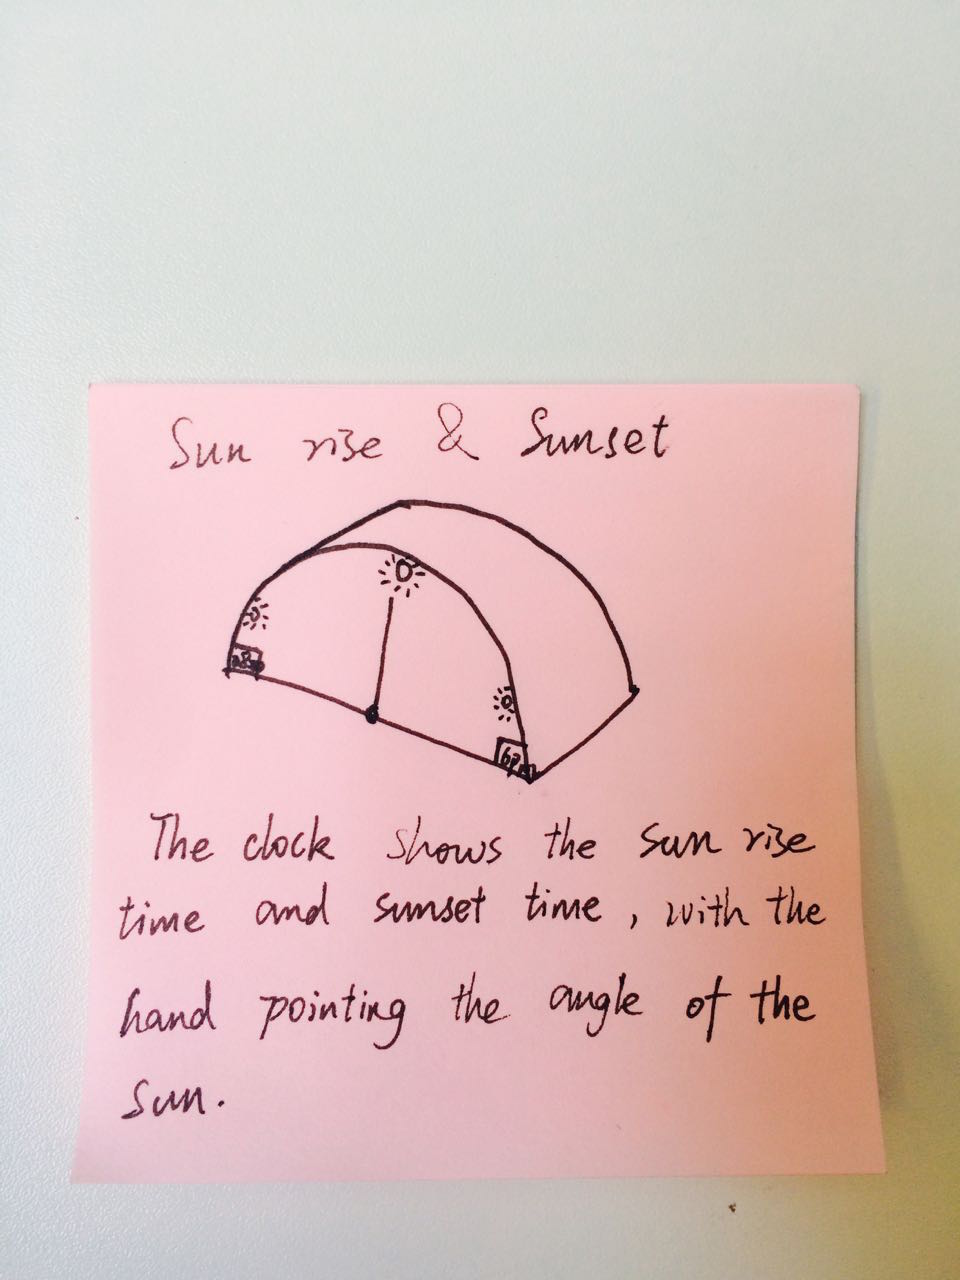 Sun rise & Sunset
6pm
The clock shows the sun rise
time and sunset time, with the
hand pointing the angle of the
sun.